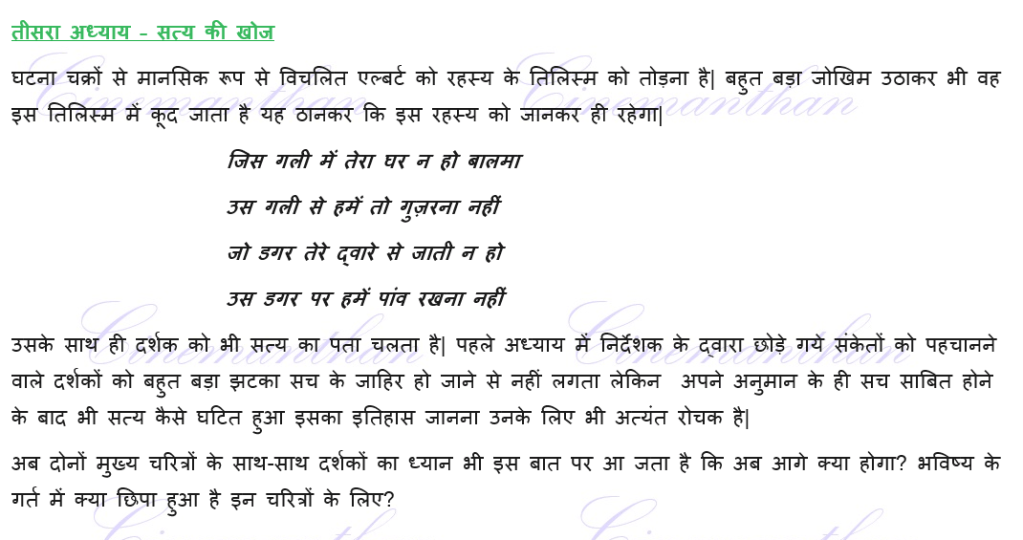 तीसरा अध्याय - सत्य की खोज
घटना चक्रों से मानसिक रूप से विचलित एल्बर्ट को रहस्य के तिलिस्म को तोड़ना है| बहुत बड़ा जोखिम उठाकर भी वह
इस तिलिस्म में कूद जाता है यह ठानकर कि इस रहस्य को जानकर ही रहेगा|
जिस गली में तेरा घर न हो बालमा
उस गली से हमें तो गुज़रना नहीं
जो डगर तेरे द्वारे से जाती न हो
उस डगर पर हमें पांव रखना नहीं
उसके साथ ही दर्शक को भी सत्य का पता चलता है| पहले अध्याय में निर्देशक के द्वारा छोड़े गये संकेतों को पहचानने
वाले दर्शकों को बहुत बड़ा झटका सच के जाहिर हो जाने से नहीं लगता लेकिन अपने अनुमान के ही सच साबित होने
के बाद भी सत्य कैसे घटित हुआ इसका इतिहास जानना उनके लिए भी अत्यंत रोचक है|
अब दोनों मुख्य चरित्रों के साथ-साथ दर्शकों का ध्यान भी इस बात पर आ जता है कि अब आगे क्या होगा? भविष्य के
गर्त में क्या छिपा हुआ है इन चरित्रों के लिए?
Cinemanthan
Cinemanthan
Cinemanthan
Cinemanthan